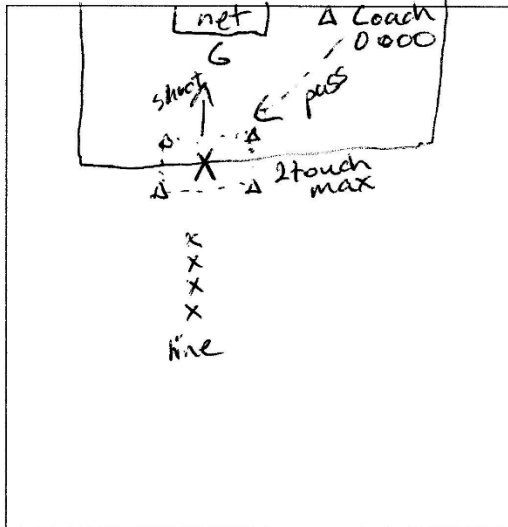 net
Δ Coach
0000
G
shoot
pass
X
2touch
max
x
x
x
x
line